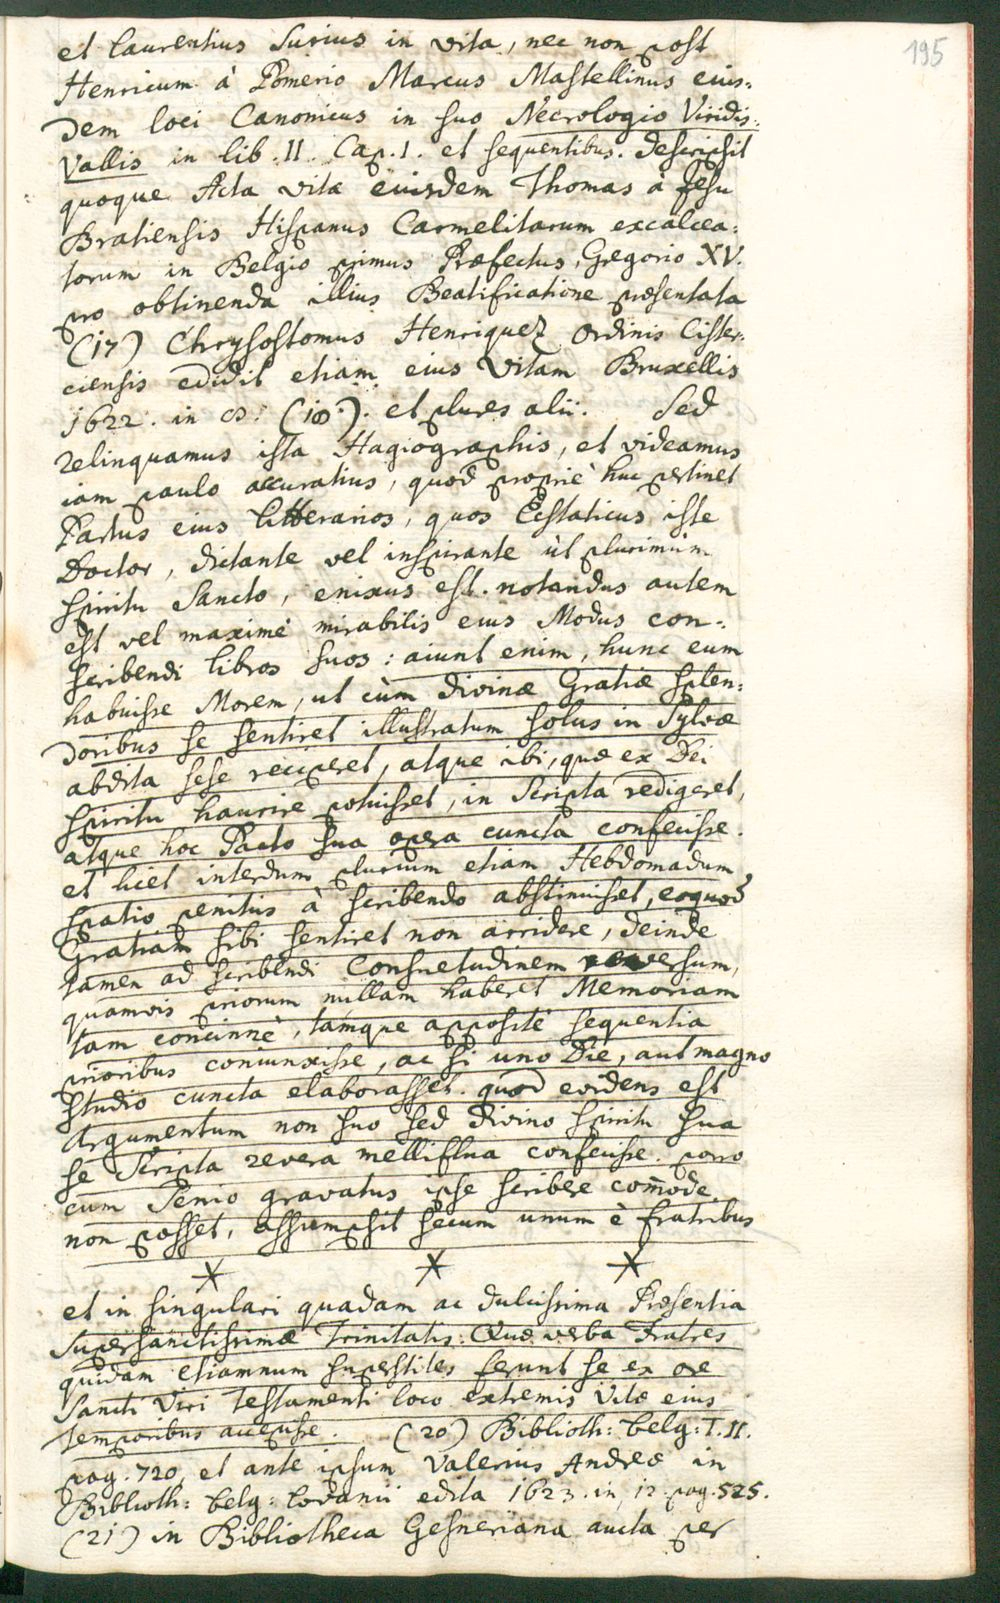 195
et Laurentius Surius in vita, nec non post
Henricum à Pomerio Marcus Mastellinus eius-
dem loci Canonicus in suo Necrologio Viridis-
Vallis in lib. II. Cap. I. et sequentibus. descripsit
quoque Acta vitæ eiusdem Thomas à Jesu
Bratiensis Hispanus Carmelitarum excalcea-
torum in Belgio primus Præfectus, Gregorio XV.
pro obtinenda illius Beatificatione præsentata
(17) Chrysostomus Henriquez Ordinis Cister-
ciensis edidit etiam eius Vitam Bruxellis
1622. in 8. (18). et plures alii. Sed
relinquamus ista Hagiographis, et videamus
iam paulo accuratius, quod propriè huc pertinet
Partus eius litterarios, quos Ecstaticus iste
Doctor, dictante vel inspirante ùt plurimùm
Spiritu Sancto, enixus est. notandus autem
est vel maximè mirabilis eius Modus con-
scribendi libros suos: aiunt enim, hunc eum
habuisse Morem, ut cùm divinæ Gratiæ splen-
doribus se sentiret illustratum solus in Sylvæ
abdita sese reciperet, atque ibi, quæ ex Dei
spiritu haurire potuisset, in Scripta redigeret,
atque hoc Pacto sua opera cuncta confecisse.
et licet interdum plurium etiam Hebdomadum
spatio penitus à scribendo abstinuisset, eoquod
Gratiam sibi sentiret non arridere, deinde
tamen ad scribendi Consuetudinem reversum,
quamvis priorum nullam haberet Memoriam
tam concinnè, tamque appositè sequentia
prioribus coniunxisse, ac si uno Die, aut magno
studio cuncta elaborasset. quod evidens est
Argumentum non suo sed divino spiritu sua
se Scripta revera melliflua confecisse. porro
cum Senio gravatus ipse scribere com̃ode
non posset, assumpsit secum unum è fratribus
* * *
et in singulari quadam ac dulcissima Præsentia
supersanctissimæ Trinitatis. Quæ verba Fratres
quidam etiamnum superstites ferunt se ex ore
Sancti Viri testamenti loco extremis Vitæ eius
temporibus accepisse. (20) Biblioth: belg: T. II.
pag. 720, et ante ipsum Valerius Andreæ in
Biblioth: belg: Lovanii edita 1623. in 12. pag. 525.
(21) in Bibliotheca Gesneriana aucta per